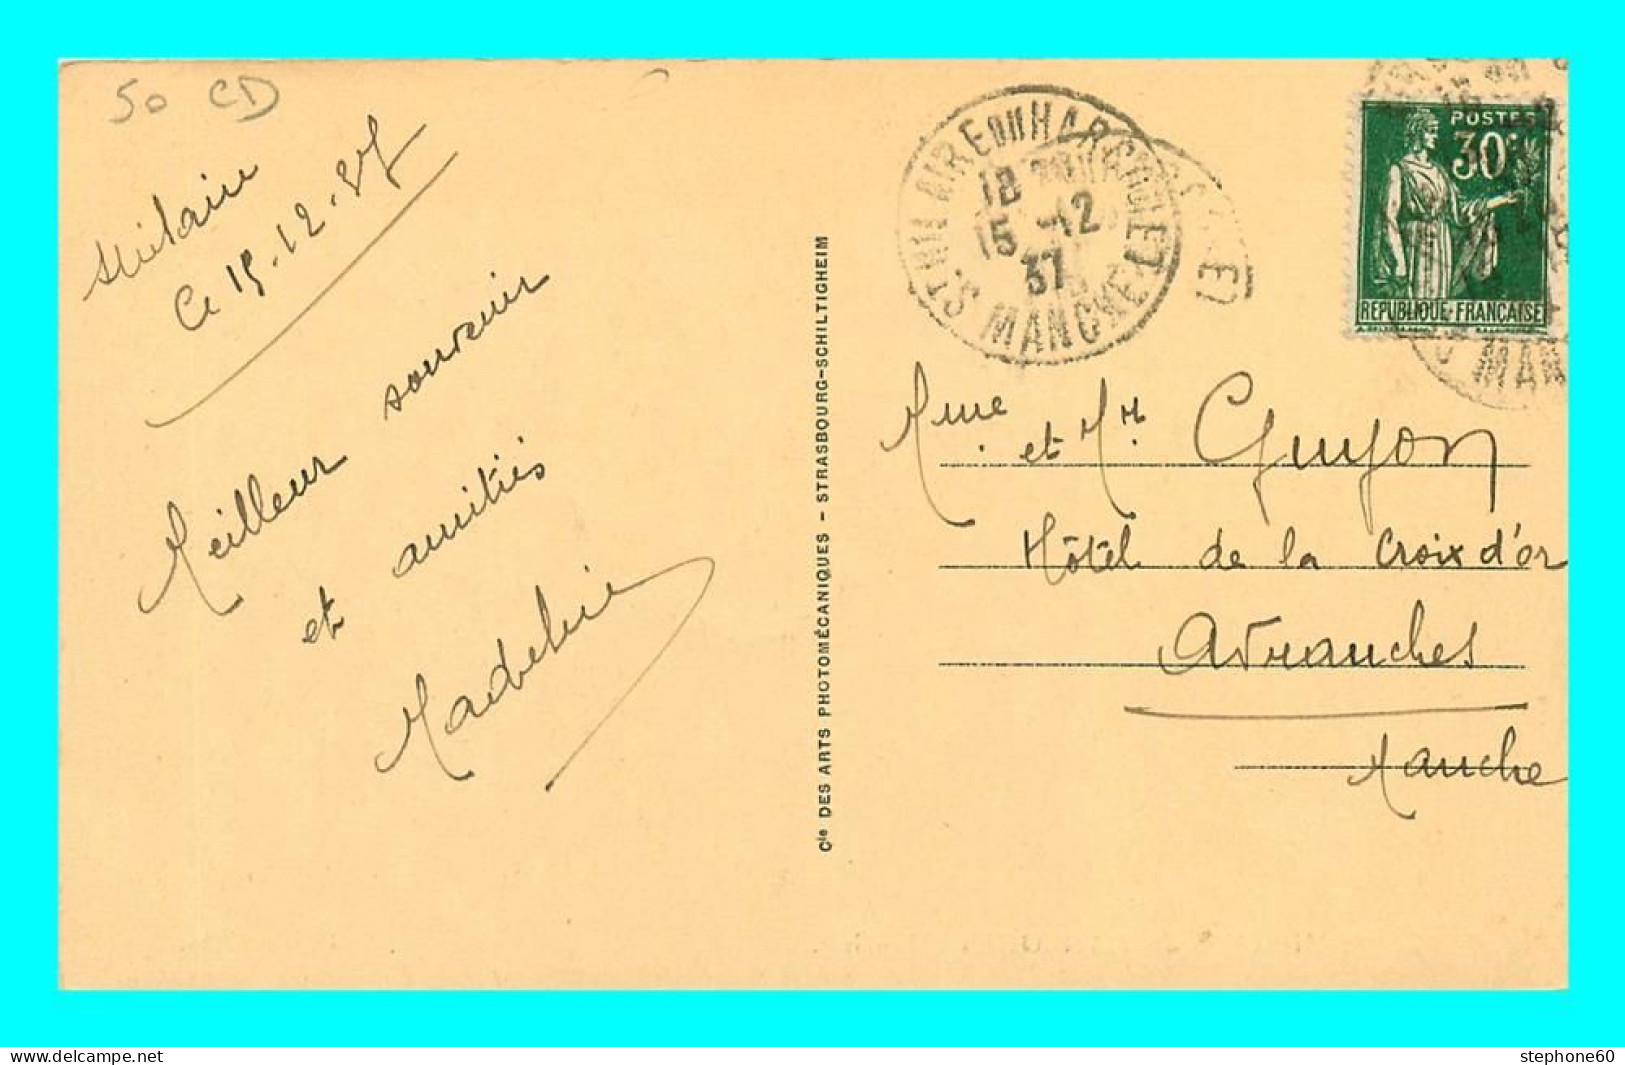 50 CD
St Hilaire
Ce 15.12.37
Meilleur souvenir
et amitiés
Madeleine
Cie DES ARTS PHOTOMÉCANIQUES - STRASBOURG-SCHILTIGHEIM
ST HILAIRE DU HARCOUET
18
15 -12
37
MANCHE
POSTES
30c
REPUBLIQUE FRANÇAISE
MAN
Mme et Mr Guyon
Hôtel de la Croix d'or
Avranches
Manche
delcampe.net
stephone60